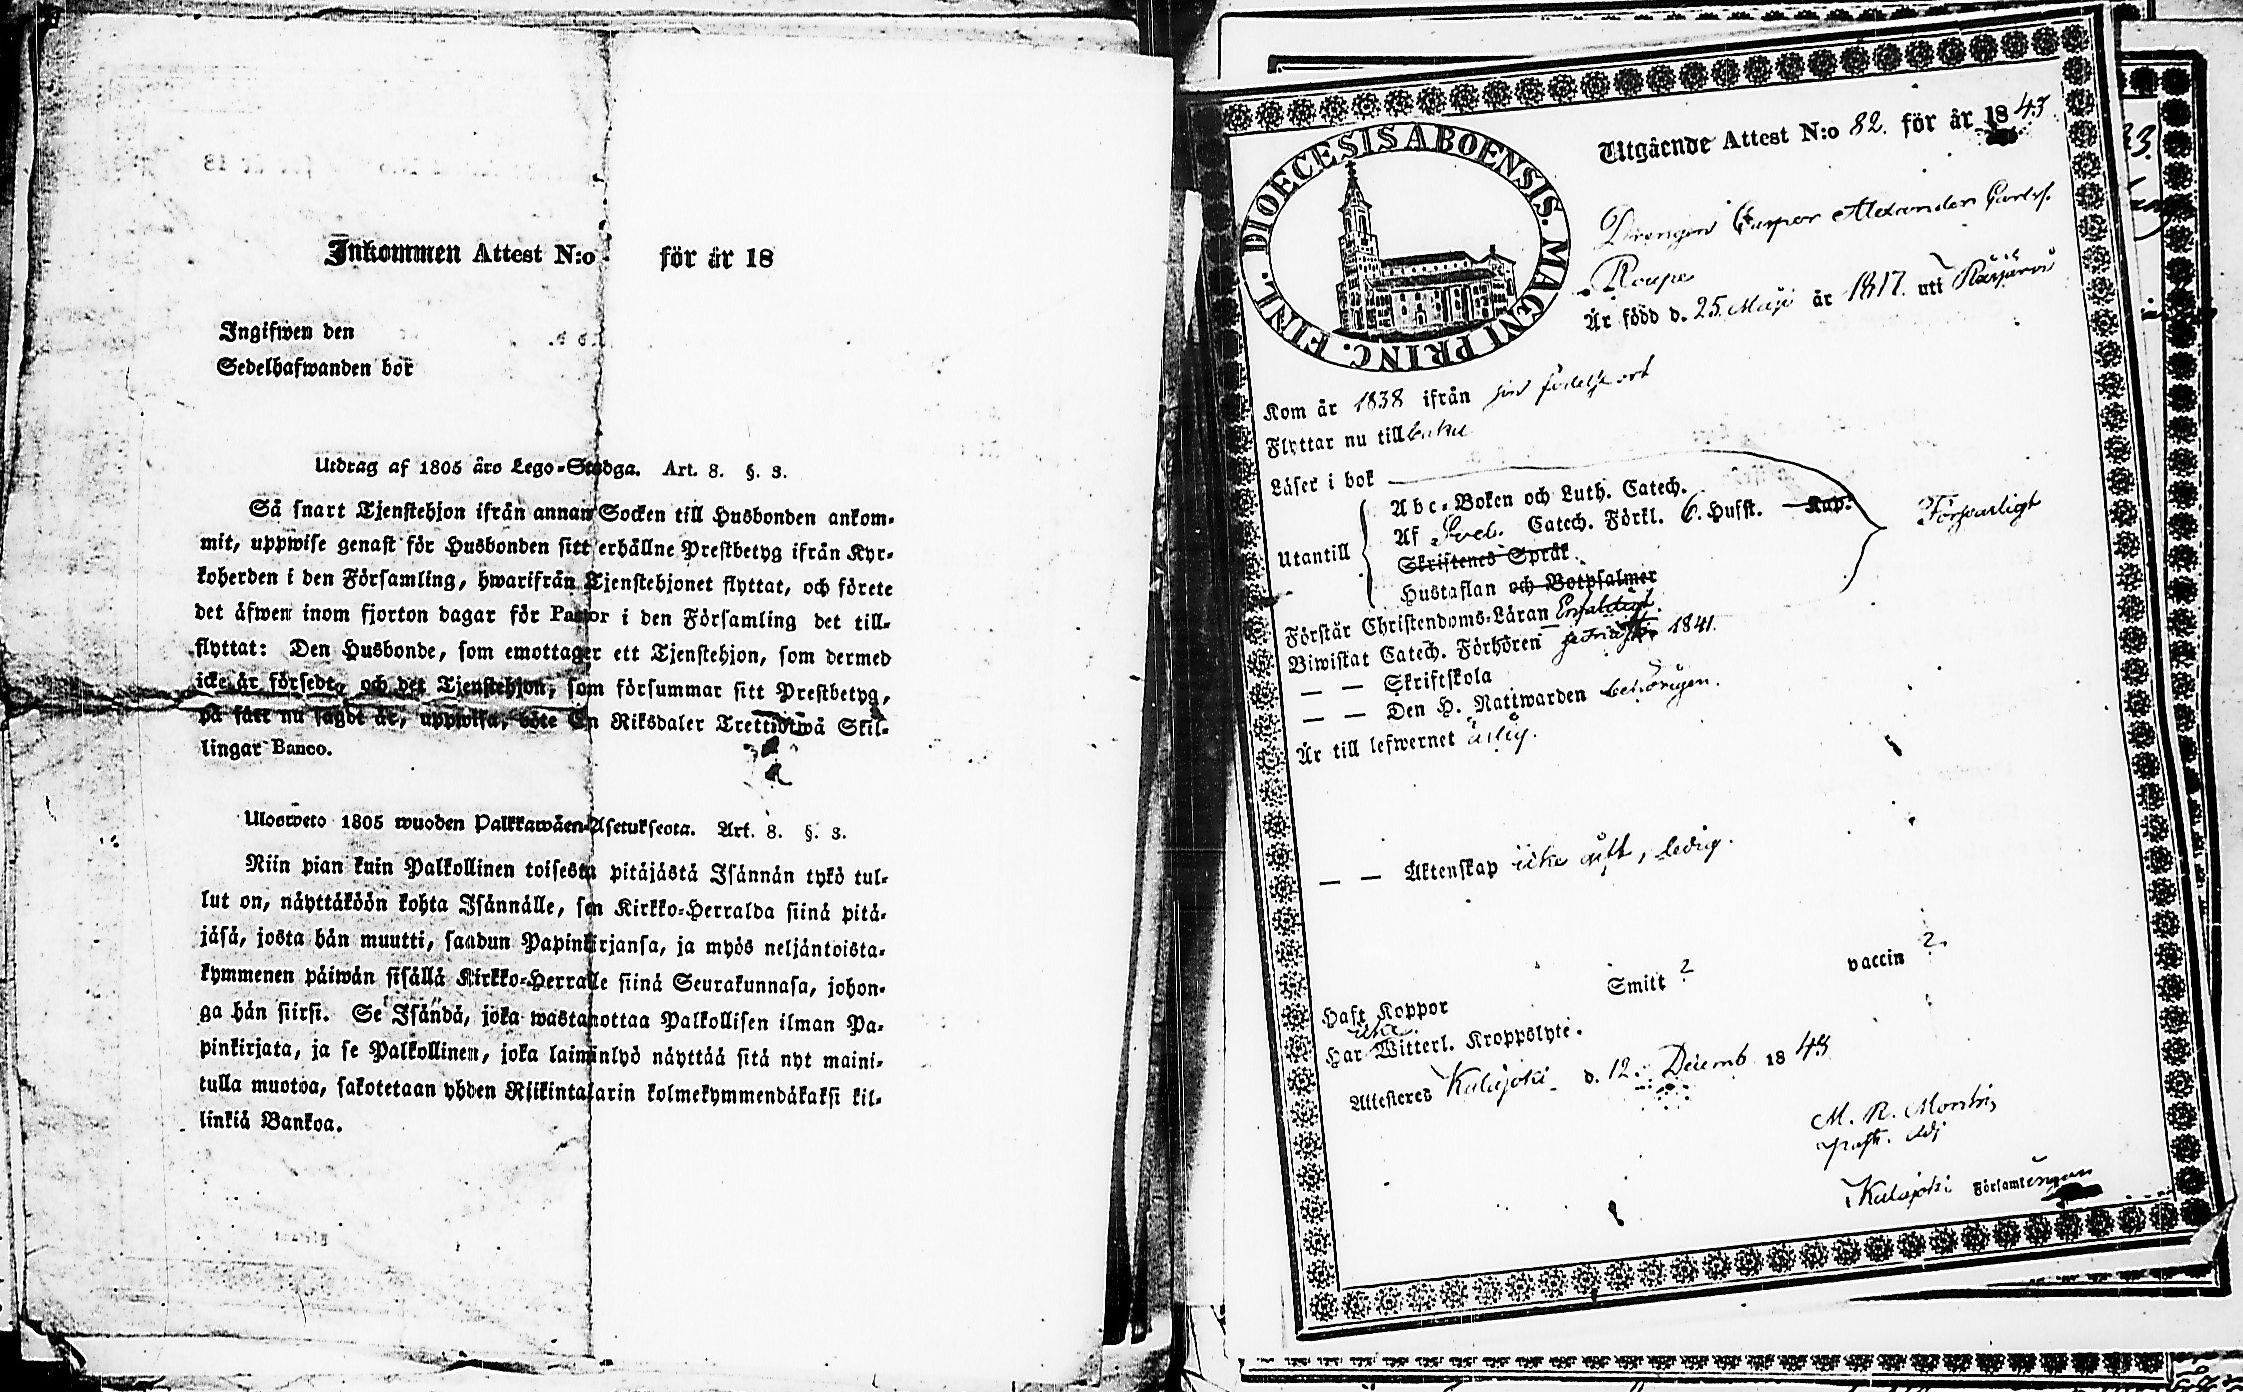 Inkommen Attest N:o för år 18
Ingifwen den
Sedelhafwanden bor
Utdrag af 1805 års Lego-Stadga. Art. 8. §. 3.
Så snart Tjenstehjon ifrån annan Socken till Husbonden ankom-
mit, uppwise genast för Husbonden sitt erhållne Prestbetyg ifrån Kyr-
koherden i den Församling, hwarifrån Tjenstehjonet flyttat, och förete
det äfwen inom fjorton dagar för Pastor i den Församling det till-
flyttat: Den Husbonde, som emottager ett Tjenstehjon, som dermed
icke är försedt, och det Tjenstehjon, som försummar sitt Prestbetyg,
på sätt nu sagdt är, uppwisa, böte En Riksdaler Trettiotwå Skil-
lingar Banco.
Ulosweto 1805 wuoden Palkkawäen-Asetuksesta. Art. 8. §. 3.
Niin pian kuin Palkollinen toisesta pitäjästä Isännän tykö tul-
lut on, näyttäköön kohta Isännälle, sen Kirkko-Herralda siinä pitä-
jäsä, josta hän muutti, saadun Papinkirjansa, ja myös neljäntoista-
kymmenen päiwän sisällä Kirkko-Herralle siinä Seurakunnasa, johon-
ga hän siirsi. Se Isändä, joka wastanottaa Palkollisen ilman Pa-
pinkirjata, ja se Palkollinen, joka laiminlyö näyttää sitä nyt maini-
tulla muotoa, sakotetaan yhden Riikintalarin kolmekymmendäkaksi kil-
linkiä Bankoa.
DIOECESIS ABOENSIS. MAGNI PRINC. FINL.
Utgående Attest N:o 82. för år 1843
Drengen Casper Alexander Carlss.
Roupe
Är född d. 25 Maji år 1817. uti
Kom år 1838 ifrån sin födelse ort
Flyttar nu till baka
Läser i bok
Utantill
Abc-Boken och Luth. Catech.
Af Sveb. Catech. Förkl. 6. Husst. Kap:
Skriftenes Språk
Hustaflan och Botpsalmer
Försvarligt
Förstår Christendoms-Läran Enfaldigt.
Biwistat Catech. Förhören 1841.
— — Skriftskola
— — Den H. Nattwarden behörigen.
Är till lefwernet ärlig.
— — Äktenskap icke gift, ledig.
Haft Koppor Smitt ? vaccin ?.
icke.
Har Witterl. Kroppslyte.
Attesteres Kalajoki d. 12. Decemb 1843
M. R.
past. adj
Kalajoki Församlingen